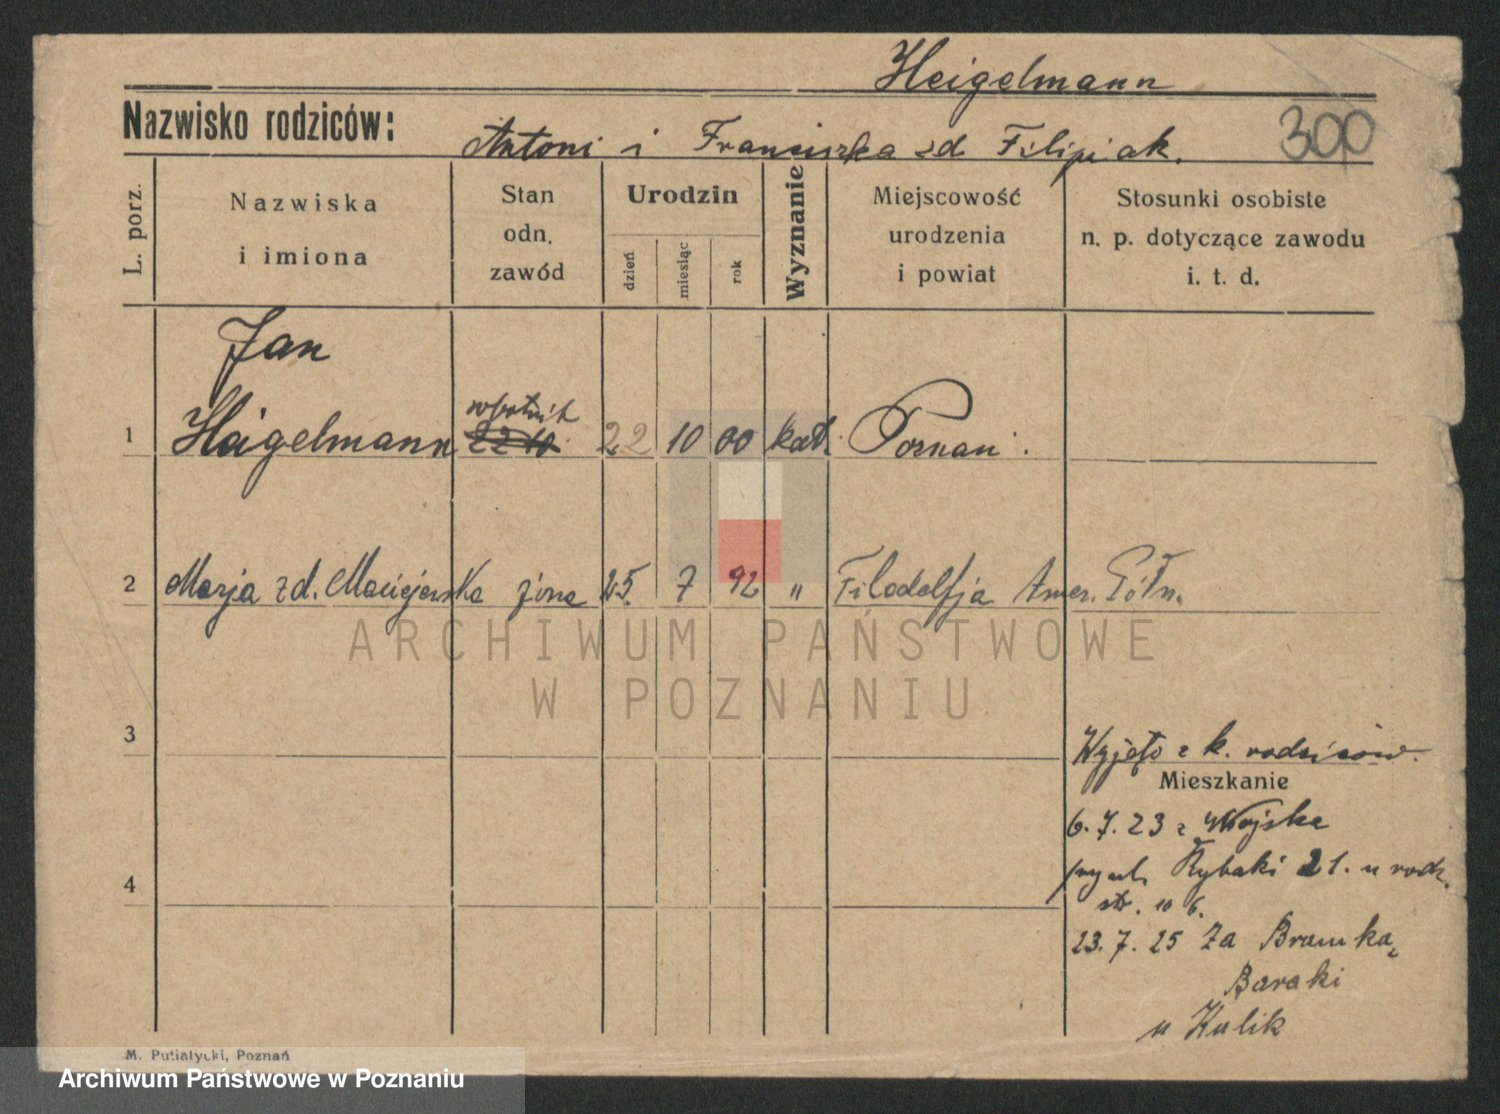 Heigelmann
Nazwisko rodziców: Antoni i Franciszka zd. Filipiak.
300
L. porz.
Nazwiska
i imiona
Stan
odn.
zawód
Urodzin
dzień
miesiąc
rok
Wyznanie
Miejscowość
urodzenia
i powiat
Stosunki osobiste
n. p. dotyczące zawodu
i. t. d.
Jan
1 Heigelmann robotnik 22 10 00 kat. Poznań.
2 Marja zd. Maciejewska żona 25. 7 92 " Filadelfja Amer. Półn.
3
Wyjęto z k. rodziców.
Mieszkanie
6. 7. 23 z Wojska
Rybaki 21. u rodz.
str. 10 6.
4
23. 7. 25 Za Bramką
Baraki
u Kulik
M. Putiatycki, Poznań
ARCHIWUM PAŃSTWOWE
W POZNANIU
Archiwum Państwowe w Poznaniu